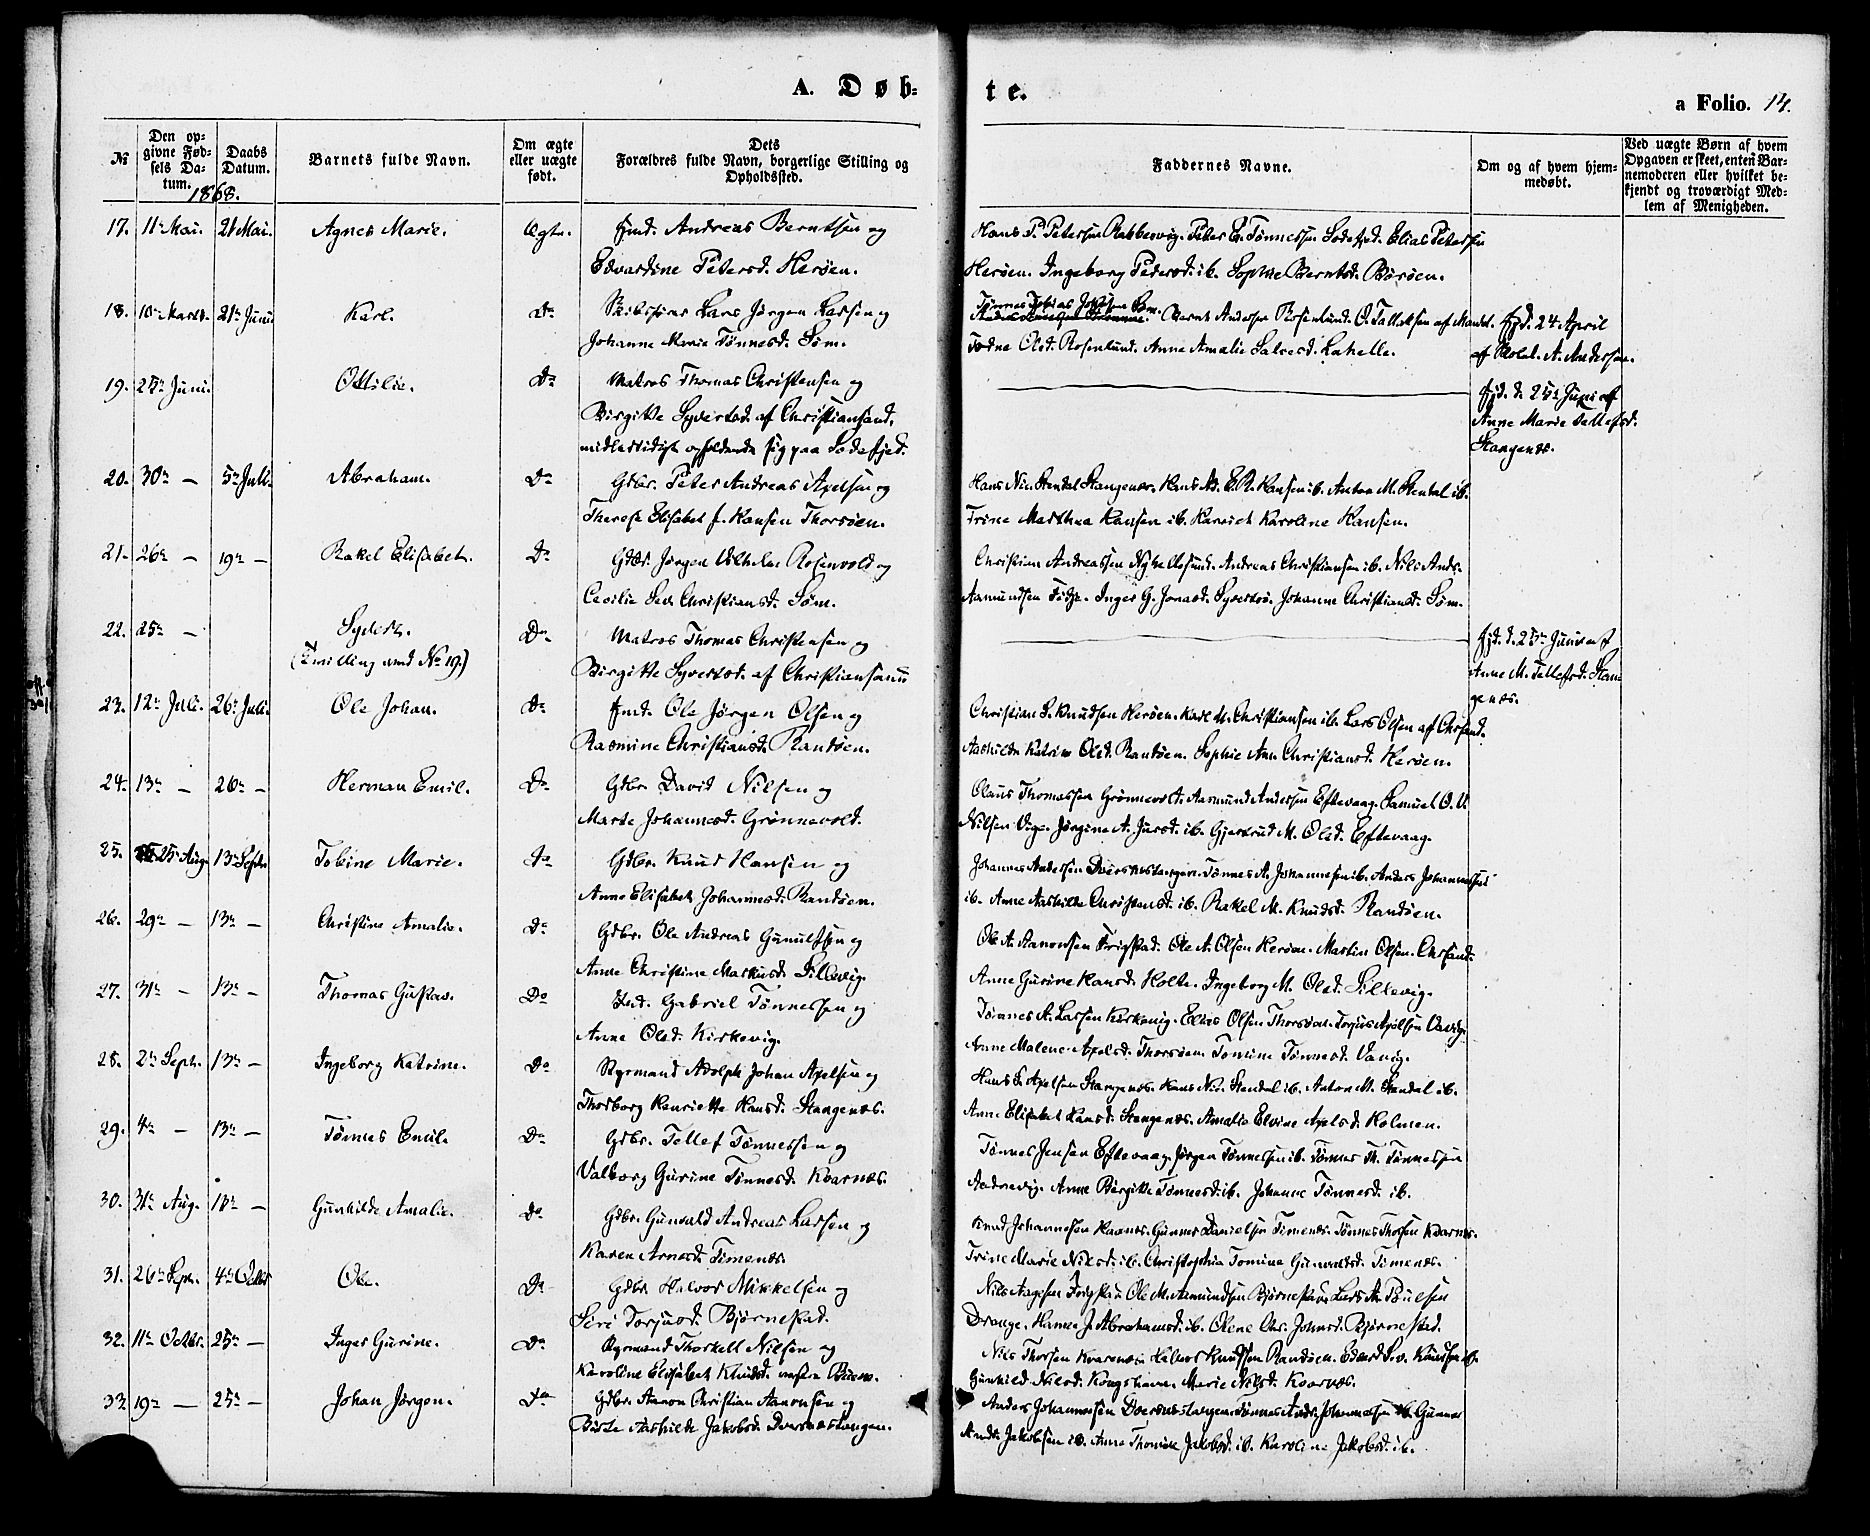 A. Døb-
te.
a Folio. 14.
№
Den op-
givne Fød-
sels Da-
tum.
Daabs
Datum.
Barnets fulde Navn.
Om ægte
eller uægte
født.
Dets
Forældres fulde Navn, borgerlige Stilling og
Opholdssted.
Faddernes Navne.
Om og af hvem hjem-
medøbt.
Ved uægte Børn af hvem
Opgaven er skeet, enten Bar-
nemoderen eller hvilket be-
kjendt og troværdigt Med-
lem af Menigheden.
1868.
17. 11te Mai. 21 Mai. Agnes Marie. Ægte. Jnd. Andreas Berntsen og
Edvardine Petersd. Herøen.
Hans P. Petersen Peter E. Tønnessen Elias Petersen
Herøen. Ingeborg Pedersd. ib. Sophie Berntsd. Børøen.
18. 21de Juni Karl. Do Lars Jørgen Larsen og
Johanne Marie Tønnesd. Søm.
Tønnes Tobias Søm. Bernt Andersen Rosenlund. O. Tallaksen af Mandal.
Olsd. Rosenlund. Anne Amalie Salvesd. Lahelle.
hjd. 24. April
af A. Andersen.
19. 25de Juni. Ottilie. Do Matros Thomas Christensen og
Birgitte Syvertsd. af Christiansand,
midlertidigt opholdende sig paa Sodefjed.
hjd. d. 25de Juni af
Anne Marie Tellefsd.
Stangenes.
20. 30te — 5te Juli. Abraham. Do Gdbr. Peter Andreas Axelsen og
Therese Elisabet f. Hansen Thorsøen.
Hans Nic. Stendal Stangenes. Hansen ib. Anton M. Stendal ib.
Trine Marthea Hansen ib. Karoline Hansen.
21. 26de — 19de — Rakel Elisabet. Do Jørgen Vilhelm Rosenvold og
Cecilie Christiansd. Søm.
Christian Andreassen Andreas Christiansen ib. Nils Ands.
Aamundsen Inger G. Jonasd. Johanne Christiansd. Søm.
22. 25de — Syvert. Do Matros Thomas Christensen og
(Tvilling med No 19.) Birgitte Syvertsd. af Christiansand
hjd. d. 25de Juni af
Anne M. Tellefsd. Stan
genes.
23. 12te Juli. 26de Juli. Ole Johan. Do Jnd. Ole Jørgen Olsen og
Rasmine Christiansd. Randøen.
Christian S. Knudsen Herøen. Karl M. Christiansen ib. Lars Olsen af Chrsand.
Aashilde Katrine Olsd. Randøen. Sophie Ann Christiansd. Herøen.
24. 13de — 26de — Herman Emil. Do Gdbr. David Nilsen og
Marte Johannesd. Grønnevold.
Olaus Thomassen Grønnevold. Aasmund Andersen Eftevaag. Samuel O. U.
Nilsen Vige. Jørgine A. ib. Gjertrud M. Olsd. Eftevaag.
25. 25de Aug. 13de Septbr Tobine Marie. Do Gdbr. Knud Hansen og
Anne Elisabet Johannesd. Randøen.
Johannes Andersen Dversnestangen. Tønnes A. Johannesen ib. Anders Johannessen
ib. Anne Aashilde Christensd. ib. Rakel M. Knudsd. Randøen.
26. 29de — 13de — Christine Amalie. Do Gdbr. Ole Andreas Gunulfsen og
Anne Christine Markusd. Sillevig.
Ole A. Aanonsen Frigstad. Ole A. Olsen Herøen. Martin Olsen. Chrsand.
Anne Gurine Hansd. Holte. Ingeborg M. Olsd. Sillevig.
27. 31te — 13de — Thomas Gustav. Do Jnd. Gabriel Tønnessen og
Anne Olsd. Kirkevig.
Tønnes A. Larsen Kirkevig. Elias Olsen Thorsøen. Axelsen
Anne Malene Axelsd. Thorsøen. Tomine Tønnesd.
28. 2de Septb. 13de — Ingeborg Katrine. Do Styrmand Adolph Johan Axelsen og
Thorborg Henriette Hansd. Stangenes.
Hans S. Axelsen Stangenes. Hans Nic. Stendal ib. Anton M. Stendal ib.
Anne Elisabet Hansd. Stangenes. Amalie Elvine Axelsd. Holmen.
29. 4de — 13de — Tønnes Emil. Do Gdbr. Tellef Tønnessen og
Valborg Gurine Tønnesd. Kvarnes.
Tønnes Jensen Eftevaag. Jørgen Tønnessen ib. Tønnes Th. Tønnessen
Anne Birgitte Tønnesd. ib. Johanne Tønnesd. ib.
30. 31te Aug. 13de — Gunhilde Amalie. Do Gdbr. Gunvald Andreas Larsen og
Karen Arnesd. Timenes.
Knud Johannesen Gunner Danielsen Timenes. Tønnes Thorsen Kvarnes.
Trine Marie Nilsd. ib. Christophia Tomine Gunvaldsd. Timenes.
31. 26de Sept. 4de Octbr Ole. Do Gdbr. Halvor Mikkelsen og
Siri Torjusd. Bjørnestad.
Nils Aagesen Frigstad Ole M. Aamundsen Bjørnestad. Lars A. Poulsen
Drange. Hanne J. Abrahamsd. ib. Olene Chr. Johnsd. Bjørnestad.
32. 11te Octbr. 25de — Inger Gurine. Do Styrmand Thorkell Nilsen og
Karoline Elisabet Knudsd.
Nils Thorsen Kvarenes. Halvor Knutsen Randøen. Knudsen ib.
Gunhild Nilsd. Kongshavn. Marie Nilsd. Kvarnes.
33. 19de — 25de — Johan Jørgen. Do Gdbr. Aanon Christian Aanonsen og
Birte Aashilde Jakobsd. Dversnestangen.
Anders Johannesen Dversnestangen. Tønnes Anders Johannessen ib. Gunner
Ands. Jakobsen ib. Anne Thomine Jakobsd. ib. Karoline Jakobsd. ib.